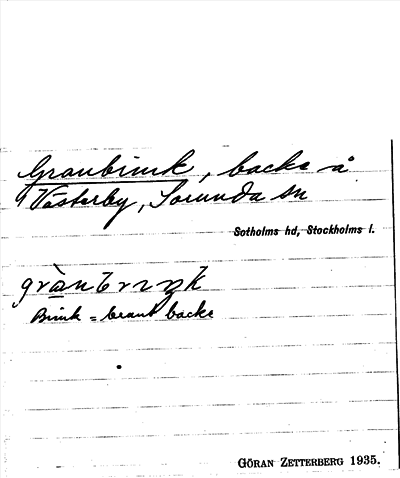 Granbrink, backe å
Västerby, Sorunda sn
Sotholms hd, Stockholms l.
Brink = brant backe
GÖRAN ZETTERBERG 1935.